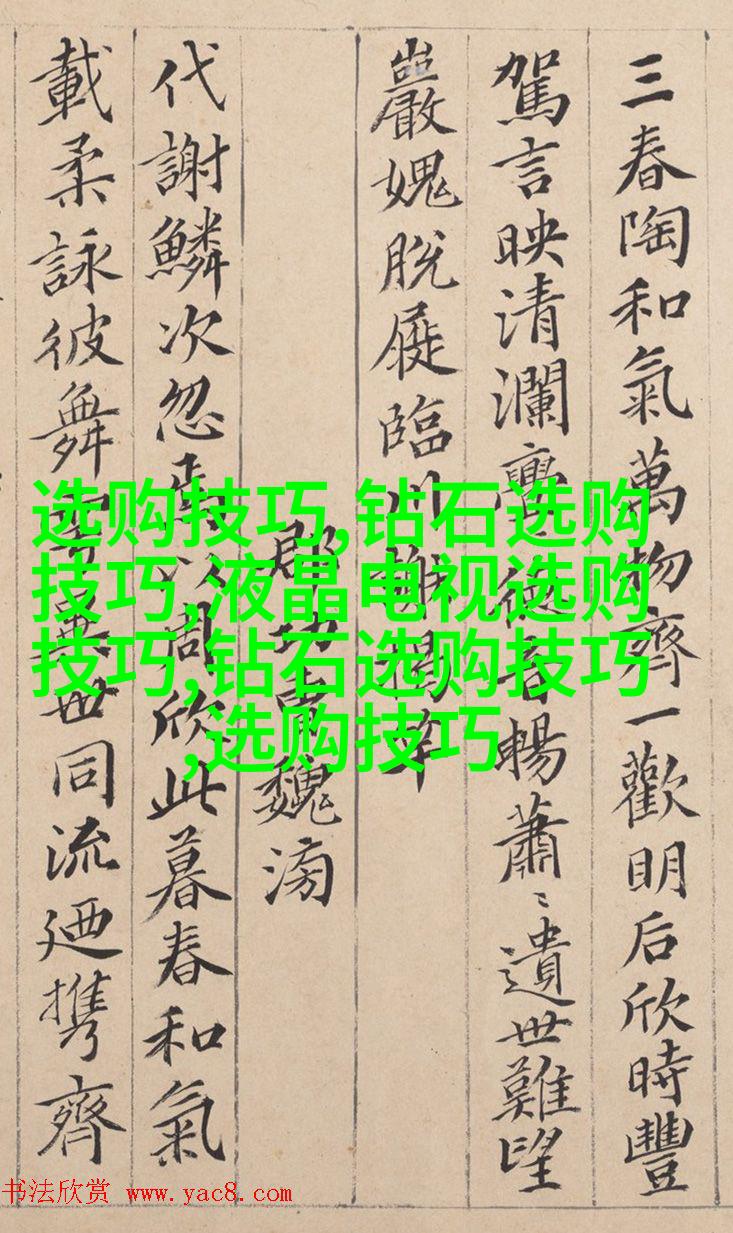 三春陶和氣萬物齊一歡明后欣時豐
駕言映清瀾亹德音暢蕭〻遺世難望
巖愧脫屣臨川謝揭竿
郡功曹魏滂
代謝鱗次忽焉以周欣此暮春和氣
載柔詠彼舞雩異世同流廼携齊
选购技巧,钻石选购
技巧,液晶电视选购
技巧,钻石选购技巧
,选购技巧
书法欣赏 www.yac8.com